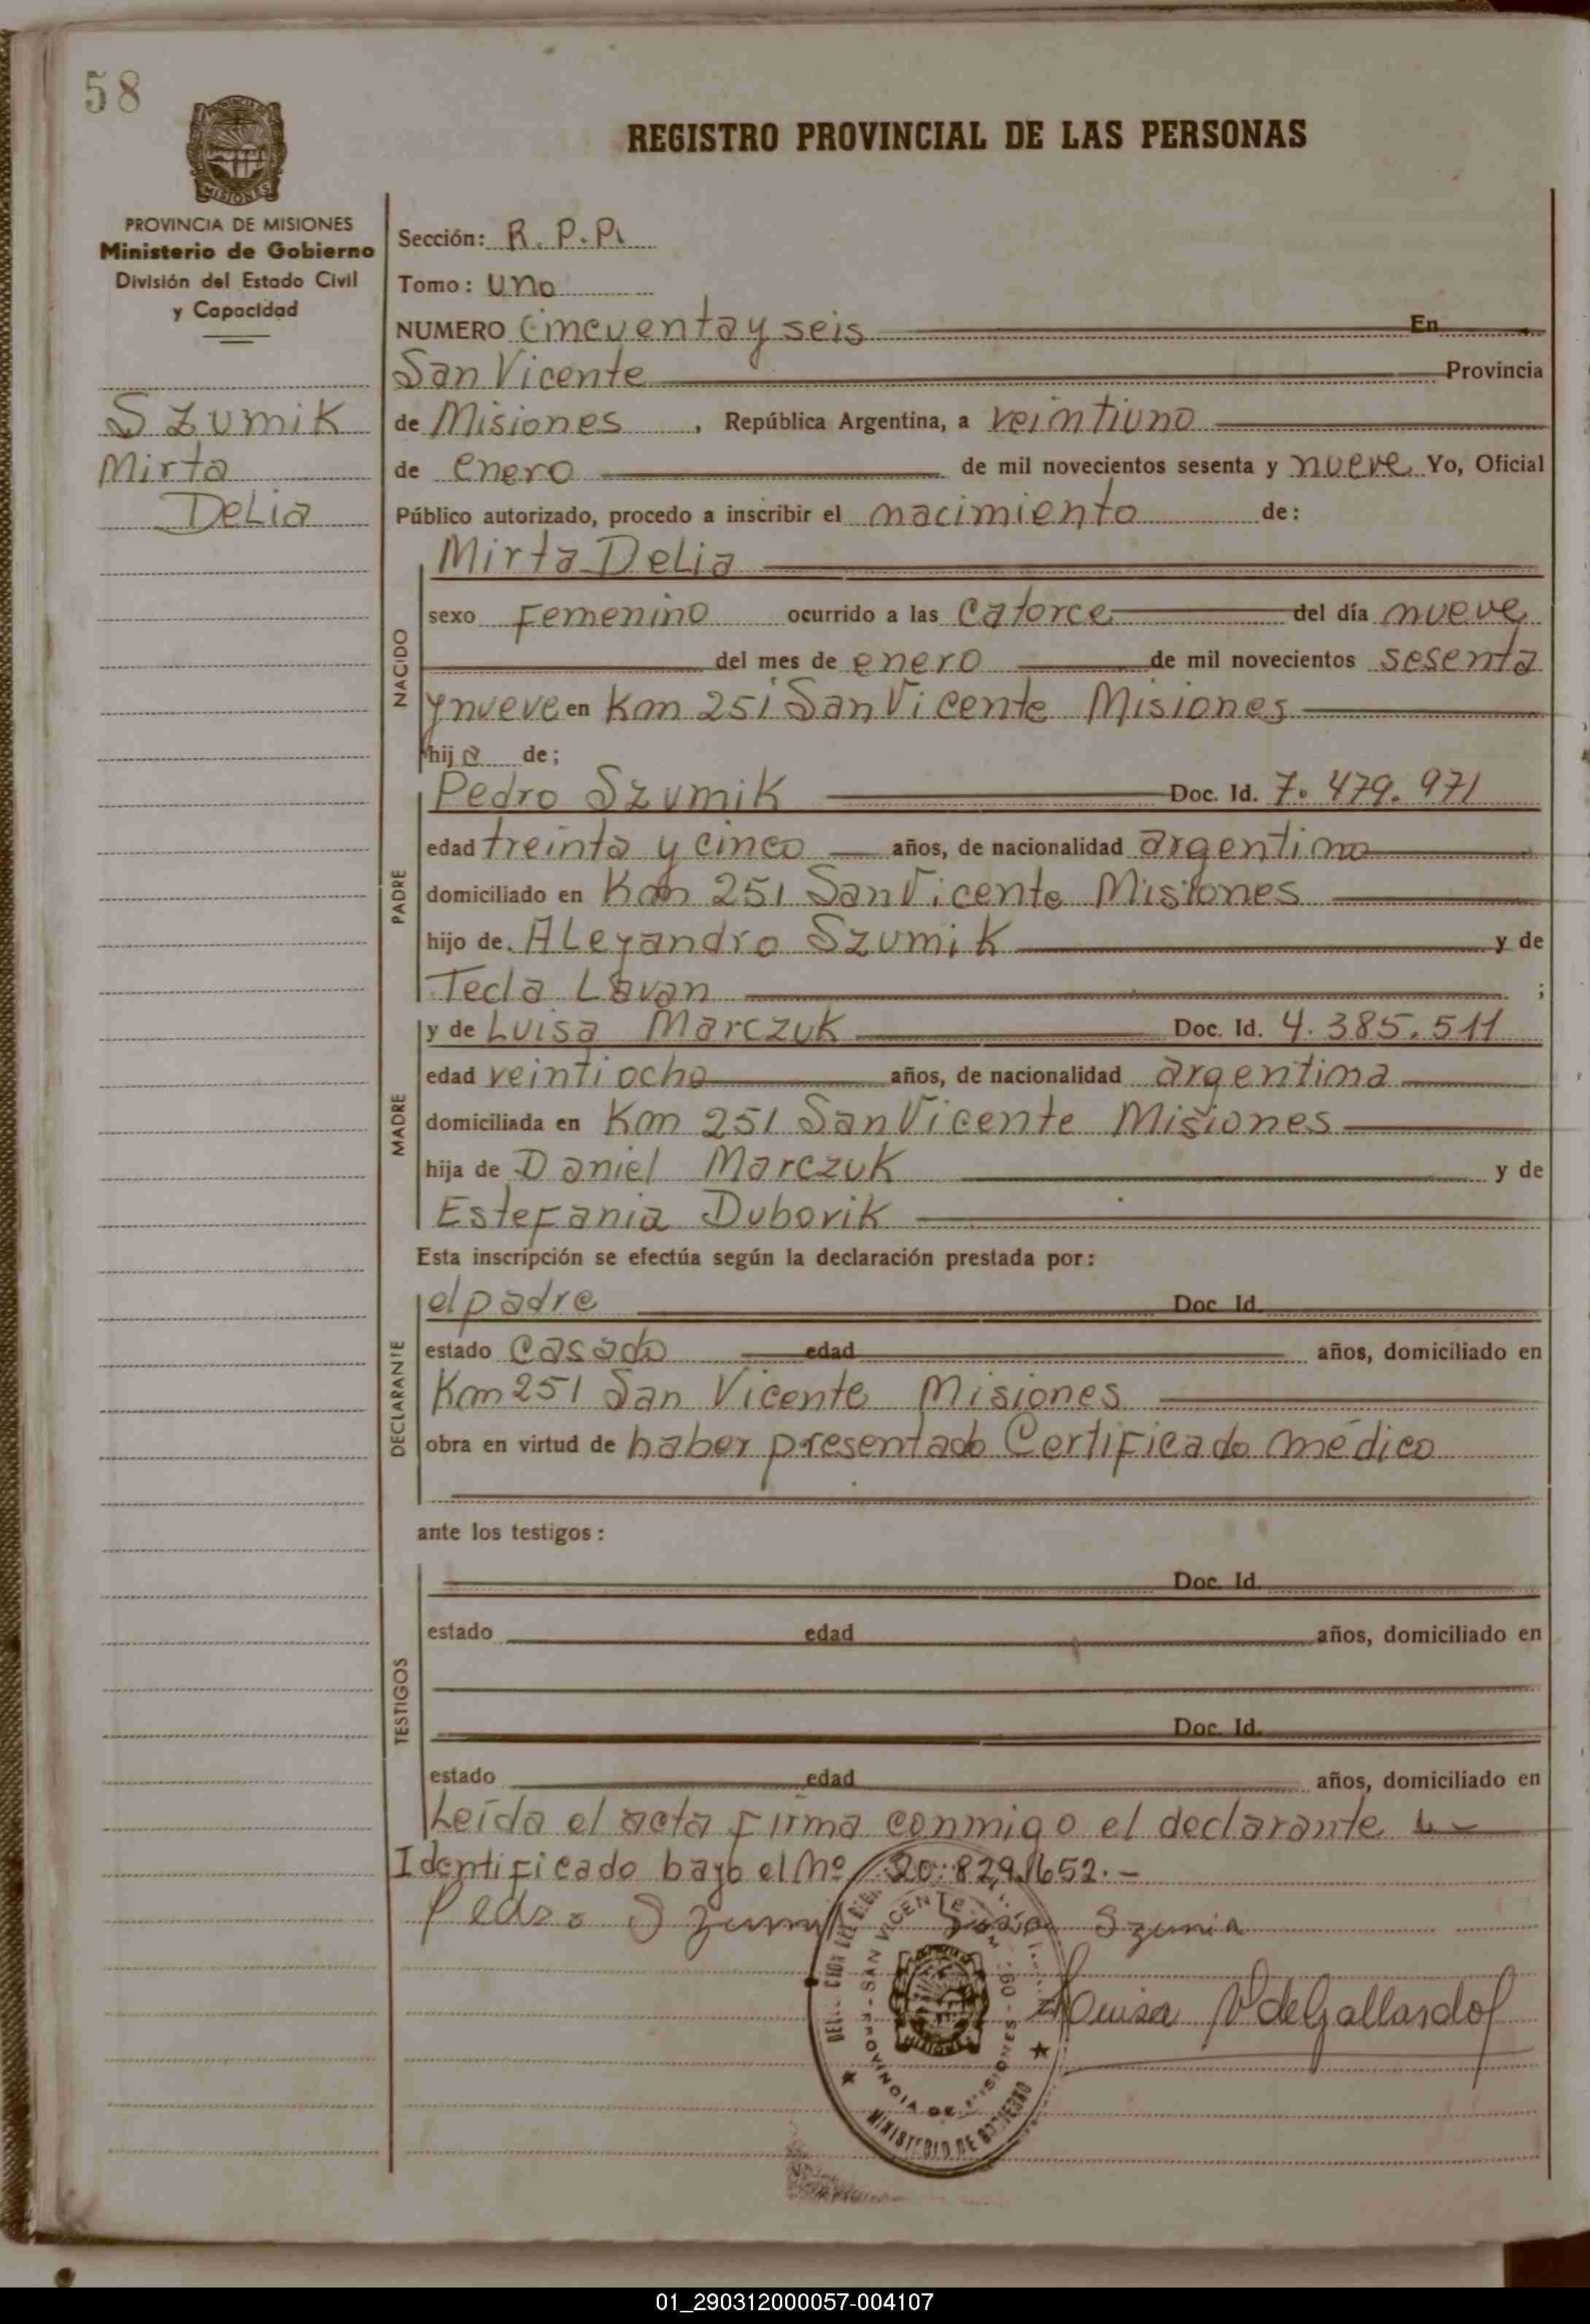 58
REGISTRO PROVINCIAL DE LAS PERSONAS
PROVINCIA DE MISIONES
Ministerio de Gobierno
División del Estado Civil
y Capacidad
Szumik
Mirta
Delia
Sección: R. P. P.
Tomo: uno
NUMERO cincuenta y seis En
San Vicente Provincia
de Misiones, República Argentina, a veintiuno
de enero de mil novecientos sesenta y nueve Yo, Oficial
Público autorizado, procedo a inscribir el nacimiento de:
NACIDO
Mirta Delia
sexo Femenino ocurrido a las catorce del día nueve
del mes de enero de mil novecientos sesenta
y nueve en Km 251 San Vicente Misiones
hija de;
PADRE
Pedro Szumik Doc. Id. 7.479.971
edad treinta y cinco años, de nacionalidad argentino
domiciliado en Km 251 San Vicente Misiones
hijo de Aleyandro Szumik y de
Tecla Lavan ;
MADRE
y de Luisa Marczuk Doc. Id. 4.385.511
edad veintiocho años, de nacionalidad argentina
domiciliada en Km 251 San Vicente Misiones
hija de Daniel Marczuk y de
Estefania Dubovik
Esta inscripción se efectúa según la declaración prestada por:
DECLARANTE
el padre Doc. Id.
estado casado edad años, domiciliado en
Km 251 San Vicente Misiones
obra en virtud de haber presentado Certificado médico
ante los testigos:
TESTIGOS
Doc. Id.
estado edad años, domiciliado en
Doc. Id.
estado edad años, domiciliado en
Leída el acta firma conmigo el declarante
Identificado bayo el Nº 20.829.652.-
Pedro
Luisa V de Gallardo
SAN VICENTE
PROVINCIA DE MISIONES
MINISTERIO DE GOBIERNO
01_290312000057-004107